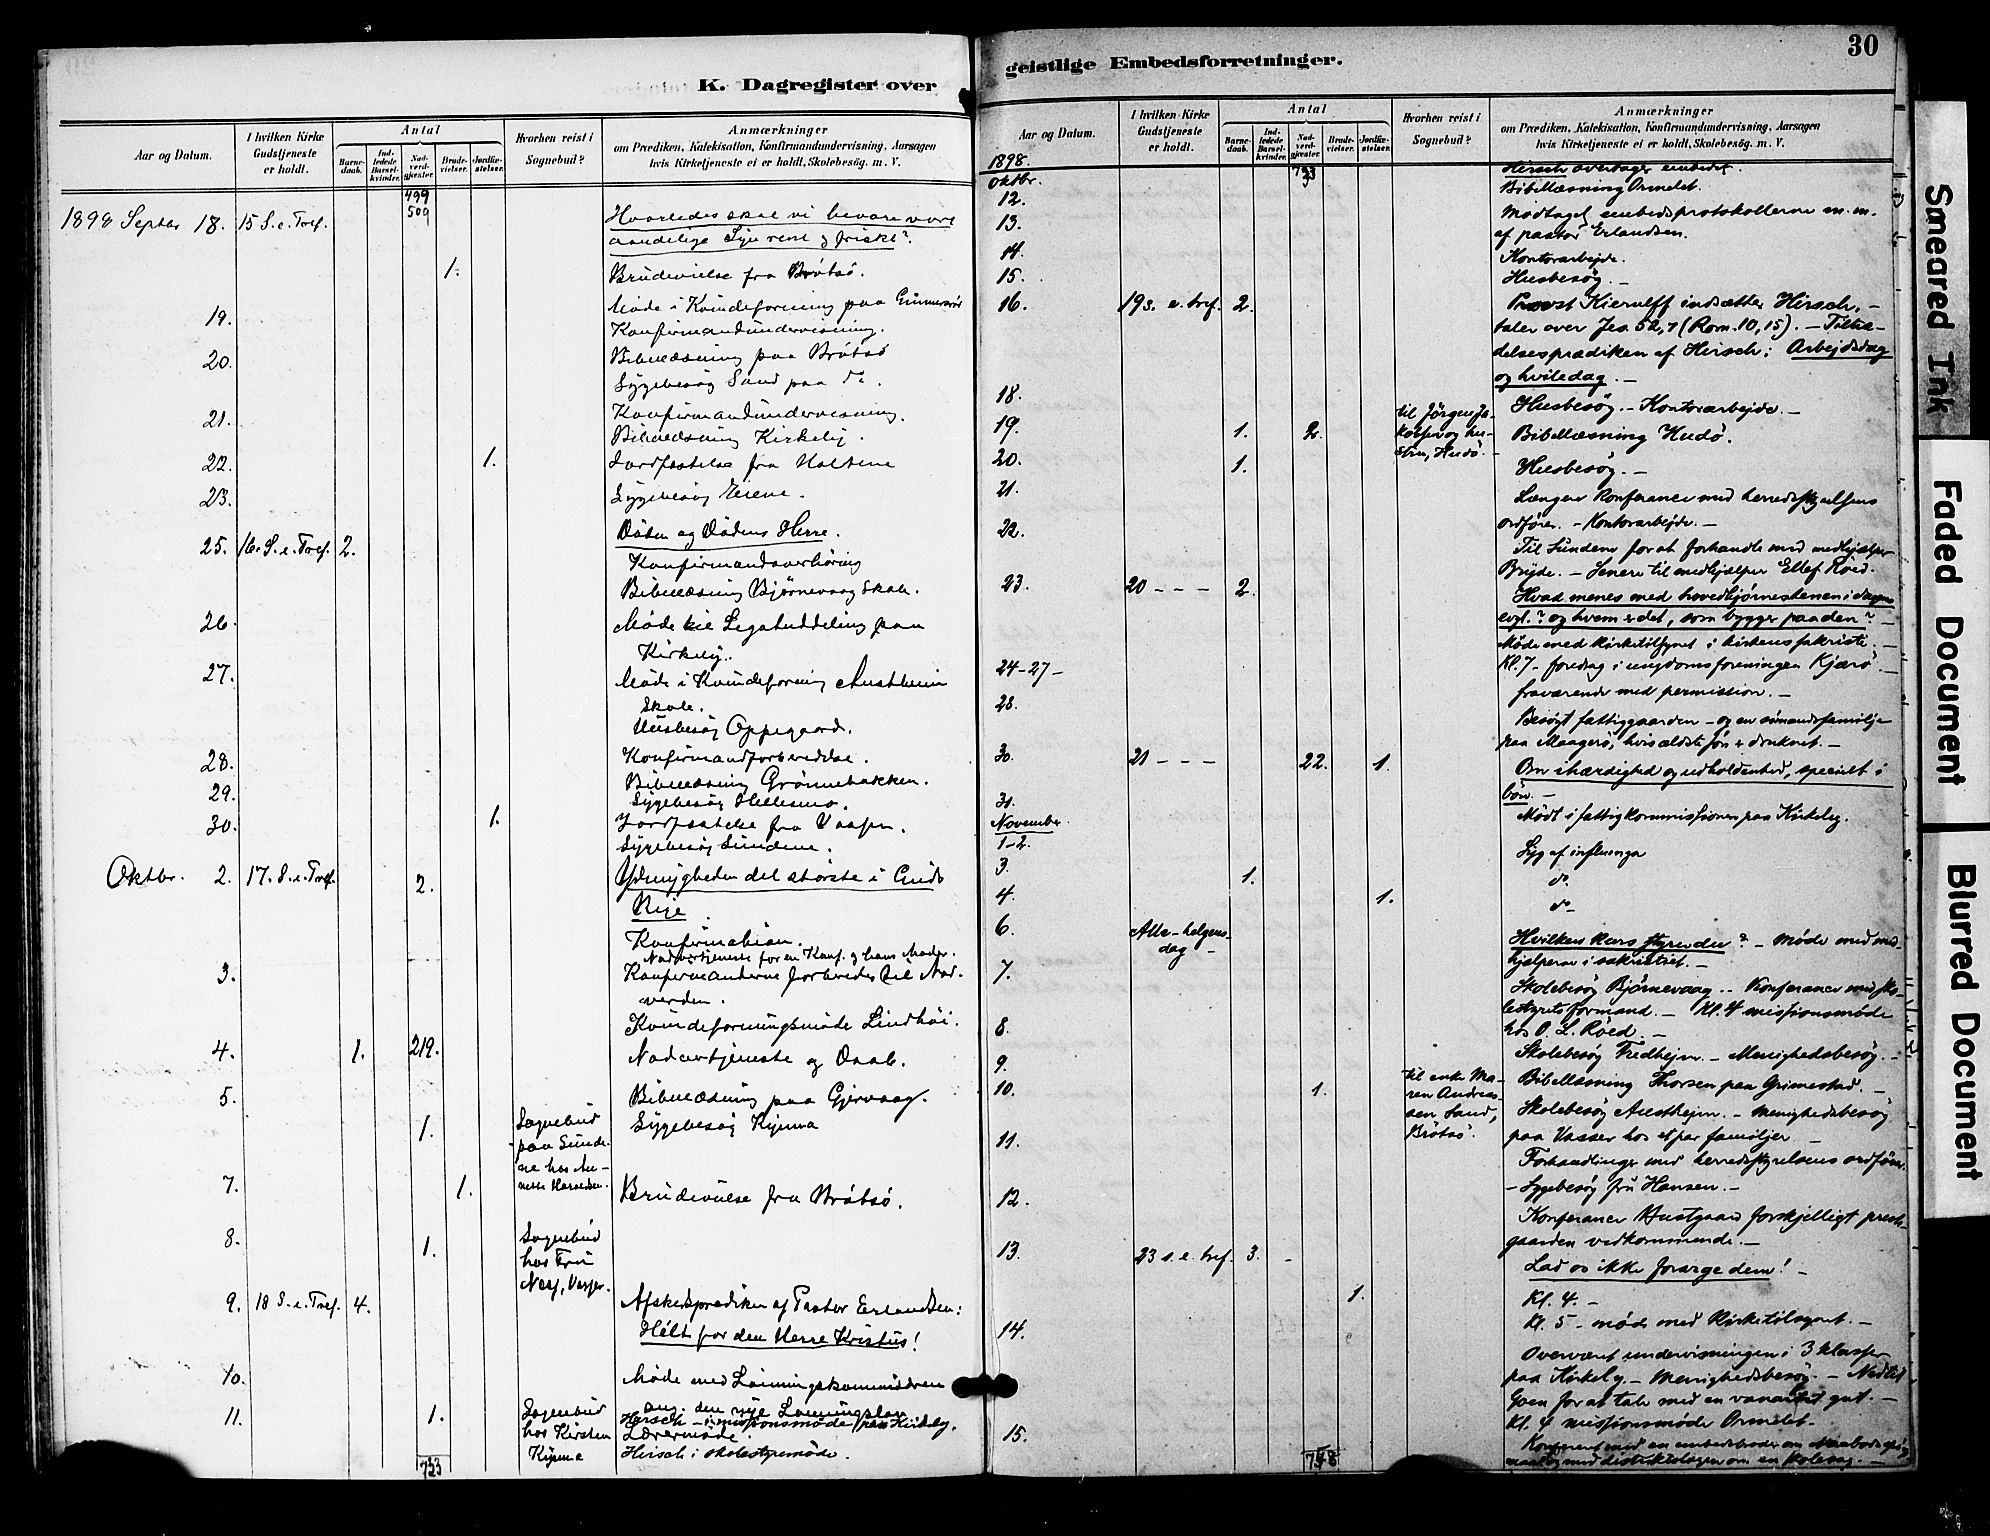 K. Dagregister over
Aar og Datum.
I hvilken Kirke Gudstjeneste er holdt.
Antal
Barne-daab.
Ind-ledede Barsel-kvinder.
Nad-verd-gjæster.
Brude-vielser.
Jordfæ-stelser.
Hvorhen reist i Sognebud?
Anmærkninger
om Prædiken, Katekisation, Konfirmandundervisning, Aarsagen
hvis Kirketjeneste ei er holdt, Skolebesøg. m. V.
499
509
1898 Septbr 18. 15 S. e. Tref. Hvorledes skal vi bevare vort
aandelige Syn rent og friskt?
1. Brudevielse fra Brøtsø.
19. Møde i Kvindeforening paa
Konfirmandundervisning.
20. Bibellæsning paa Brøtsø
Sygebesøg Sand paa do.
21. Konfirmandundervisning.
Bibellæsning Kirkeby.
22. 1. Jordfæstelse fra Holtene
23. Sygebesøg
25. 16. S. e. Tref. 2. Døden og Dødens Herre.
Konfirmandoverhøring
Bibellæsning Bjørnevaag Skole.
26. Møde til Legatuddeling paa
Kirkeby.
27. Møde i Kvindeforening Austheim
Skole.
Husbesøg Oppegaard.
28. Konfirmandforberedelse.
Bibellæsning Grønnebakken.
29. Sygebesøg Hellesmo.
30. 1. Jordfæstelse fra Vasser.
Sygebesøg Sundene.
Oktbr. 2. 17. S. e. Tref. 2. Ydmygheden det største i Guds
Rige
Konfirmation.
Nadvertjeneste for en Konf. og hans Moder.
3. Konfirmanterne forberedes til Nad-
verden.
Kvindeforeningsmøde Lindhøi.
4. 1. 219. Nadvertjeneste og Daab.
5. Bibellæsning paa Gjervaag.
1. Sognebud Sygebesøg Kjynna
paa Sunde-
ne hos An-
nette
7. 1. Brudevielse fra Brøtsø.
8. 1. Sognebud
hos Fru
Næss, Vasser.
9. 18 S. e. Tref. 4. Afskedsprædiken af Pastor Erlandsen:
Helt for den Herre Kristus!
10. Møde med Lønningskommissionen
ang. den nye Lønningslov
11. 1. Sognebud Hirsch - i missionsmøde paa Kirkeby.
hos Kirsten Lærermøde
Kjynna Hirsch i skolestyremøde.
733
geistlige Embedsforretninger.
30
Aar og Datum.
I hvilken Kirke Gudstjeneste er holdt.
Antal
Barne-daab.
Ind-ledede Barsel-kvinder.
Nad-verd-gjæster.
Brude-vielser.
Jordfæ-stelser.
Hvorhen reist i Sognebud?
Anmærkninger
om Prædiken, Katekisation, Konfirmandundervisning, Aarsagen
hvis Kirketjeneste ei er holdt, Skolebesøg. m. V.
1898.
Oktbr. 733 Hirsch overtager embedet.
12. Bibellæsning Ormelet.
13. Modtaget embedsprotokollerne m. m.
af pastor Erlandsen.
14. Kontorarbejde.
15. Husbesøg.
16. 19 s. e. tref. 2. Provst Kierulff indsætter Hirsch, -
taler over Jes. 52,7 (Rom. 10,15). - Tiltræ-
delsesprædiken af Hirsch: Arbejdsdag
og hviledag. -
18. Husbesøg. - Kontorarbejde. -
19. 1. 2. til Jørgen Ja-
kobsen og hu-
stru, Hudø. Bibellæsning Hudø.
20. 1. Husbesøg. -
21. Længere konferance med herredsstyrelsens
ordfører. - Kontorarbejde. -
22. Til Sundene for at forhandle med medhjælper
Bryde. - Senere til medhjælper Ellef Roed.
23. 20 - - - 2. Hvad menes med hovedhjørnestenen i dagens
evgl.? og hvem er det, som bygger paa den? -
Møde med kirketilsynet i kirkens sakristi. -
Kl. 7 - foredrag i ungdomsforeningen Kjærø. -
24-27 - fraværende med permission. -
28. Besøgt fattiggaarden - og en sømandsfamilje
paa Maagerø, hvis ældste søn er druknet. -
30. 21 - - - 22. 1. Om ihærdighed og udholdenhed, specielt i
bøn. -
31. Mødt i fattigkommissionen paa Kirkeby.
November.
1-2. Syg af influenza
3. 1. do.
4. 1. do
6. Alle-helgens-
dag - Hvilken kurs styrer du? - Møde med med-
hjælperne i sakristiet. -
7. Skolebesøg Bjørnevaag. - Konferance med sko-
lestyrets formand. - Kl. 4 missionsmøde
hos O. L. Røed. -
8. Skolebesøg Fredhejm. - Menighedsbesøg. -
9. Bibellæsning Thorsen paa Grimestad. -
10. 1. til enke Ma-
ren Andreas-
sen Sand,
Brøtsø. Skolebesøg Austhejm. - Menighedsbesøg
paa Vasser hos et par familjer. -
11. Forhandlinger med herredsstyrelsens ordfører.
- Sygebesøg fru Hansen. -
12. Konferance Austgaard forskjelligt præste-
gaarden vedkommende. -
13. 23 s. e. tref. 3. Lad os ikke forarge dem! -
1. Kl. 4. -
Kl. 5 - møde med Kirketilsynet. -
14. Overværet undervisningen i 3 klasser
paa Kirkeby. - Menighedsbesøg. -
for at tale med en vanartet gut. -
Kl. 4 missionsmøde Ormelet.
15. Konfereret med en embedsbroder om
og med distriktslægen om en skolesag. -
758
Smeared Ink
Faded Document
Blurred Document